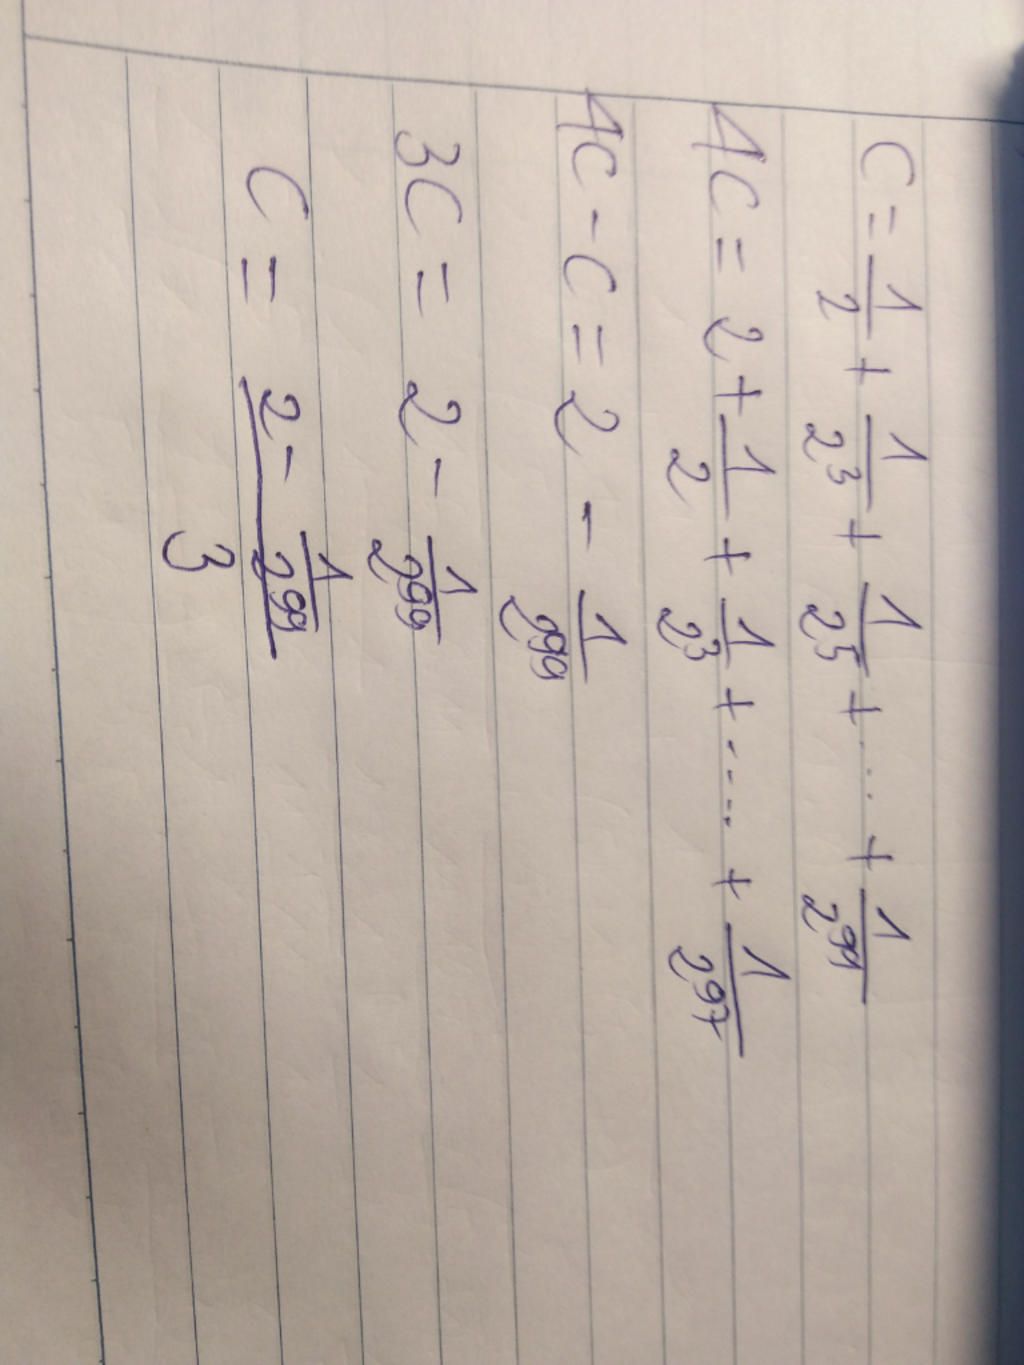 C = 1/2 + 1/2^3 + 1/2^5 + ... + 1/2^99
4C = 2 + 1/2 + 1/2^3 + .... + 1/2^97
4C - C = 2 - 1/2^99
3C = 2 - 1/2^99
C = (2 - 1/2^99)/3